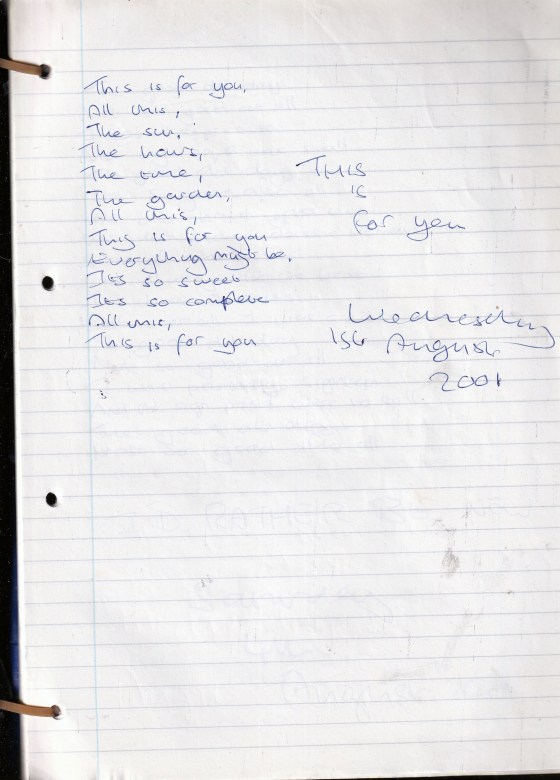 This is for you,
All this,
The sun,
The hours,
The time,
The garden,
All this,
This is for you
Everything might be,
It's so sweet
It's so complete
All this,
This is for you
THIS
is
for you
Wednesday
1st August
2001